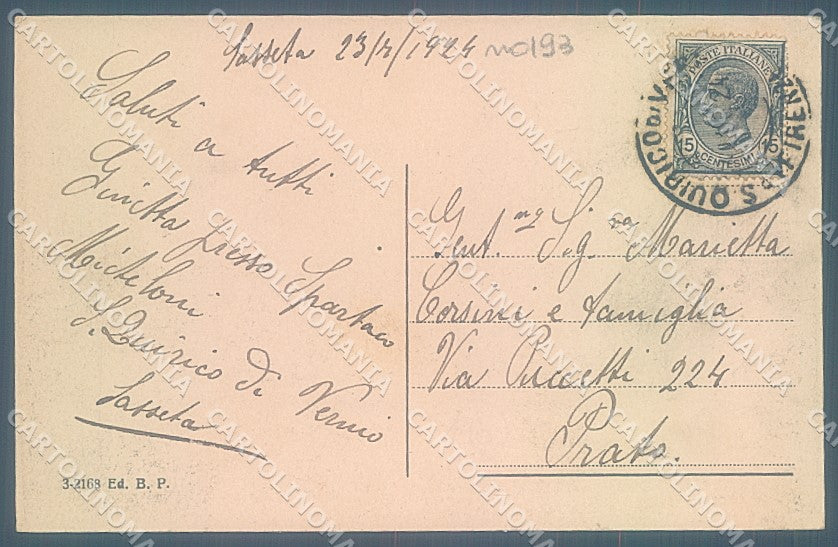 Sasseta 23/7/1924 no193
Saluti a tutti
Ginetta presso Spartaco
Micheloni
S. Quirico di Vernio
Sasseta
3-2168 Ed. B. P.
POSTE ITALIANE
15 15
CENTESIMI
S. QUIRICO DI V
FIRENZE
Gent.ma Sig.ra Marietta
Corsini e famiglia
Via Puccetti 224
Prato.
CARTOLINOMANIA